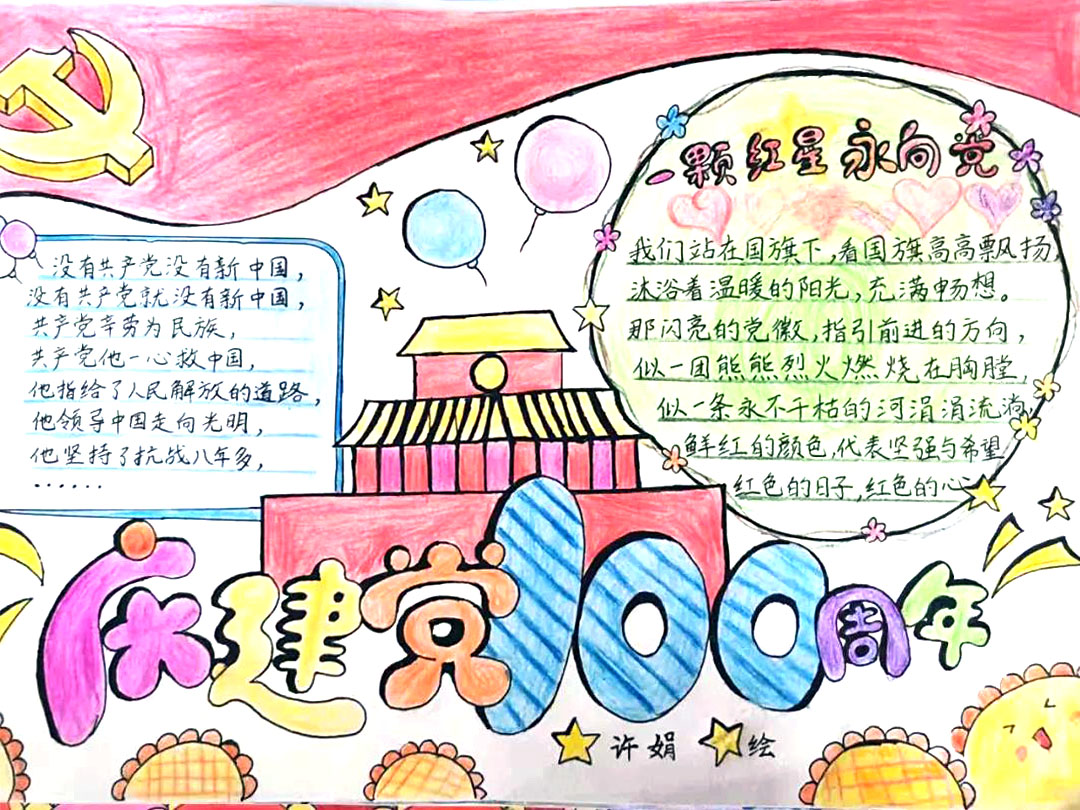 没有共产党没有新中国，
没有共产党就没有新中国，
共产党辛劳为民族，
共产党他一心救中国，
他指给了人民解放的道路，
他领导中国走向光明，
他坚持了抗战八年多，
······
一颗红星永向党
我们站在国旗下，看国旗高高飘扬，
沐浴着温暖的阳光，充满畅想。
那闪亮的党徽，指引前进的方向，
似一团熊熊烈火燃烧在胸膛，
似一条永不干枯的河涓涓流淌，
鲜红的颜色，代表坚强与希望
红色的日子，红色的心
庆建党100周年
许娟 绘